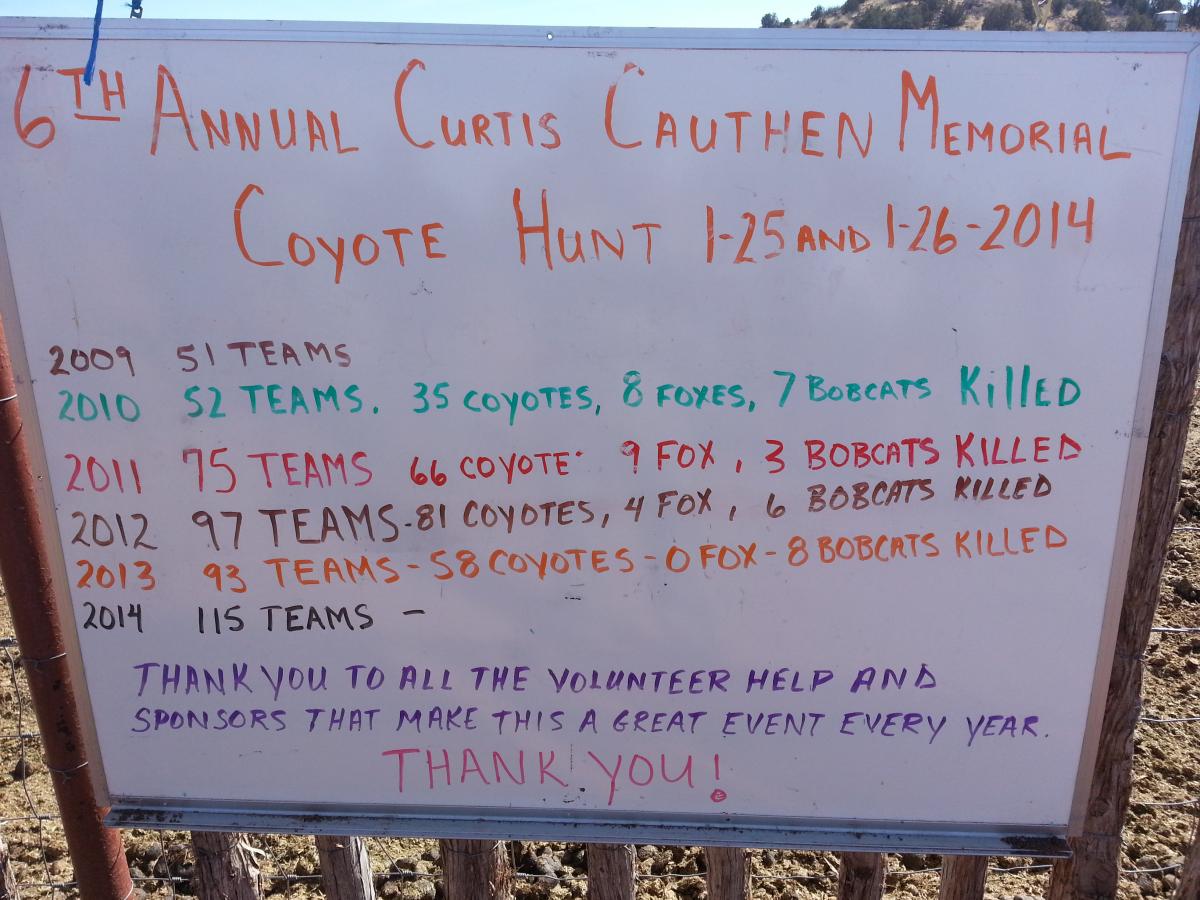 6TH ANNUAL CURTIS CAUTHEN MEMORIAL
COYOTE HUNT 1-25 AND 1-26-2014
2009 51 TEAMS
2010 52 TEAMS. 35 COYOTES, 8 FOXES, 7 BOBCATS KillED
2011 75 TEAMS 66 COYOTE· 9 FOX, 3 BOBCATS KILLED
2012 97 TEAMS-81 COYOTES, 4 FOX, 6 BOBCATS KILLED
2013 93 TEAMS-58 COYOTES-0 FOX-8 BOBCATS KILLED
2014 115 TEAMS -
THANK YOU TO ALL THE VOLUNTEER HELP AND
SPONSORS THAT MAKE THIS A GREAT EVENT EVERY YEAR.
THANK YOU!